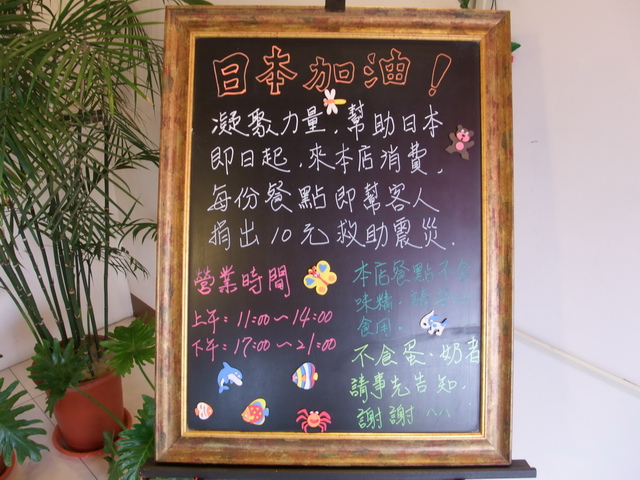 日本加油！
凝聚力量，幫助日本
即日起，來本店消費，
每份餐點即幫客人
捐出10元救助震災.
營業時間
上午：11:00～14:00
下午：17:00～21:00
本店餐點不含
味精，請
食用.
不食蛋、奶者
請事先告知，
謝謝^^